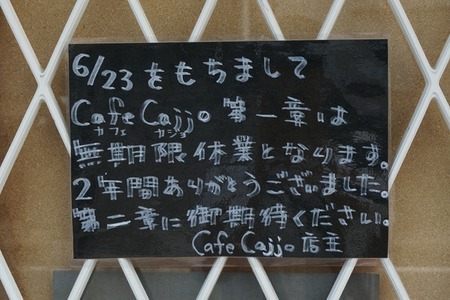 6/23をもちまして
Cafe Cajjo 第一章は
カフェ カジョ
無期限休業となります。
2年間ありがとうございました。
第二章に御期待ください。
Cafe Cajjo 店主